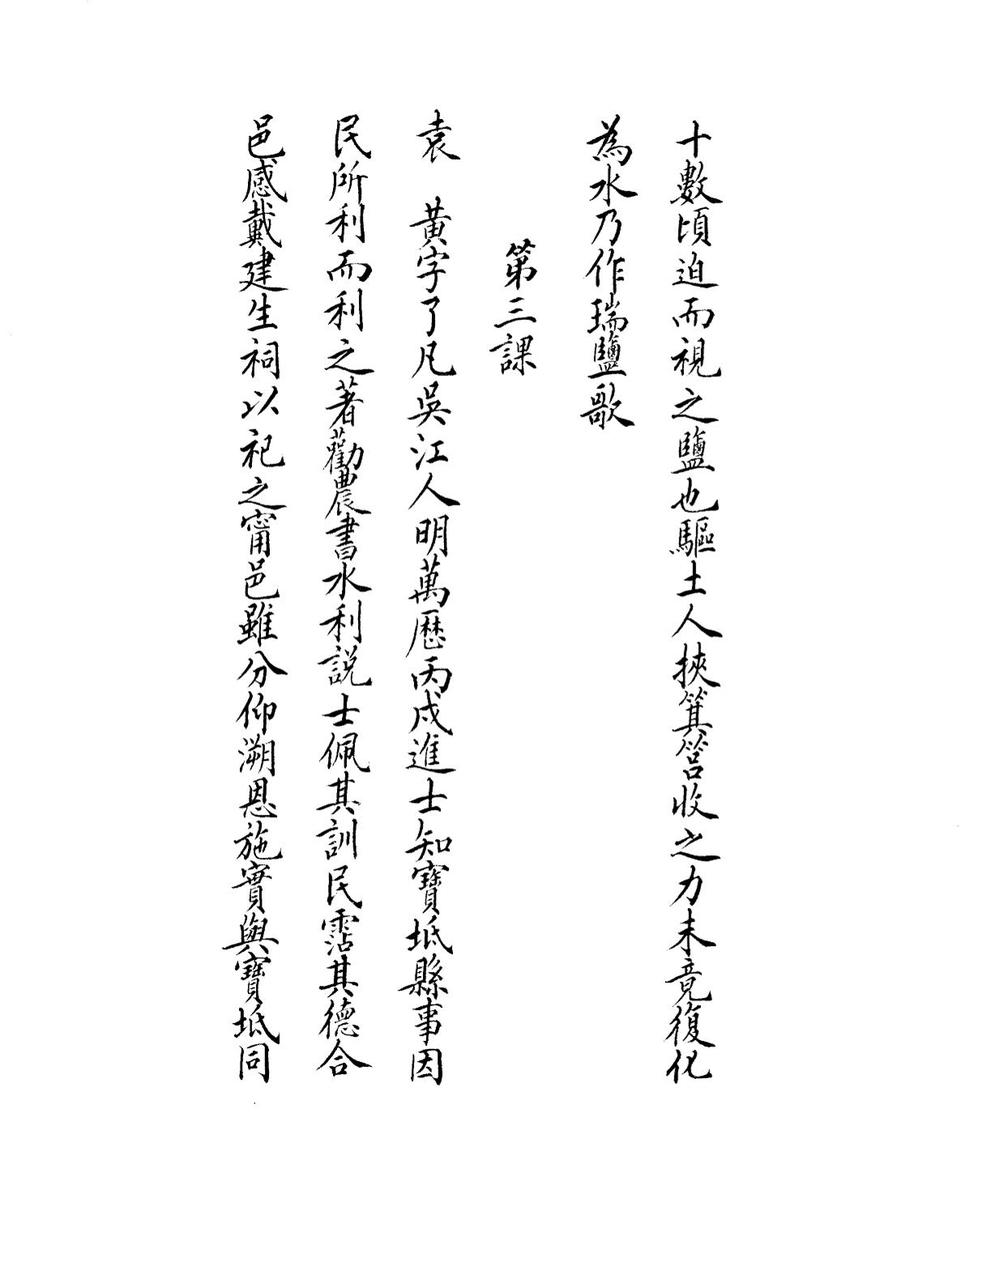 十數頃迫而視之鹽也驅土人挾箕筥收之力未竟復化
為水乃作瑞鹽歌
第三課
袁　黃字了凡吳江人明萬歷丙戌進士知寶坻縣事因
民所利而利之著勸農書水利説士佩其訓民霑其德合
邑感戴建生祠以祀之甯邑雖分仰溯恩施實與寶坻同